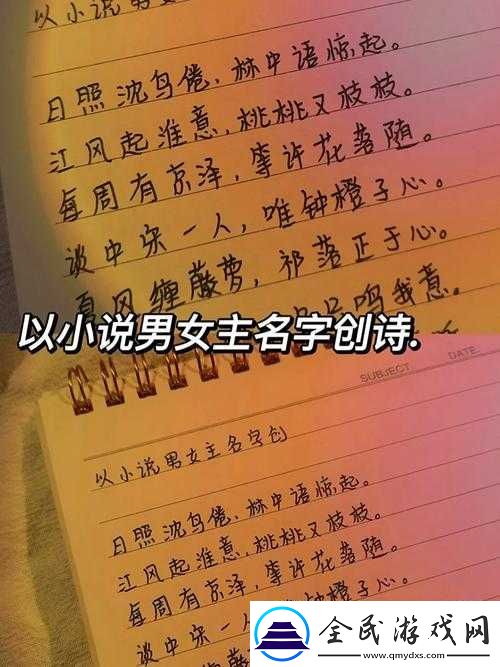 以小说男
日照沈鸟倦，林中语惊起。
江风起淮意，桃桃又枝枝。
每周有京泽，等许花落随。
谈中宋一人，唯钟橙子心。
夏风缠藤萝，祁落正于心。
只鸣我意。
以小说男女主名字创诗.
SUBJECT DATE
以小说男女主名字创
日照沈鸟倦，林中语惊起。
江风起淮意，桃桃又枝枝。
每周有京泽，等许花落随。
谈中宋一人
子心。
全民游戏网
www.qmydxs.com